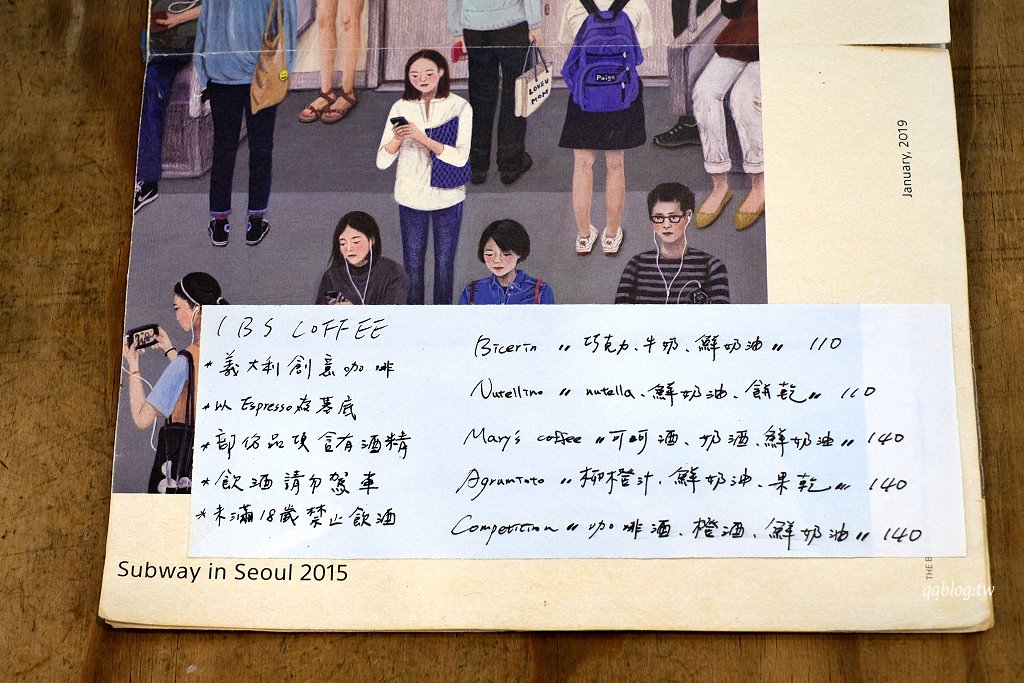 LOVE U
MOM
Paige
January, 2019
IBS COFFEE
*義大利創意咖啡
*以Espresso為基底
*部份品項含有酒精
*飲酒請勿駕車
*未滿18歲禁止飲酒
Bicerin "巧克力、牛奶、鮮奶油" 110
Nutellino "nutella、鮮奶油、餅乾" 110
Mary's coffee "可可酒、奶酒、鮮奶油" 140
Agrumato "柳橙汁、鮮奶油、果乾" 140
Competition "咖啡酒、橙酒、鮮奶油" 140
Subway in Seoul 2015
THE B
qqblog.tw